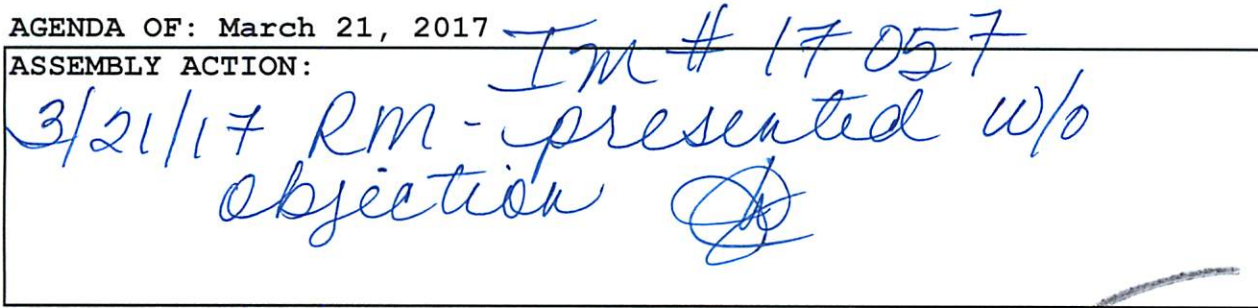 AGENDA OF: March 21, 2017
Im # 17 057
ASSEMBLY ACTION:
3/21/17 RM - presented w/o
objection